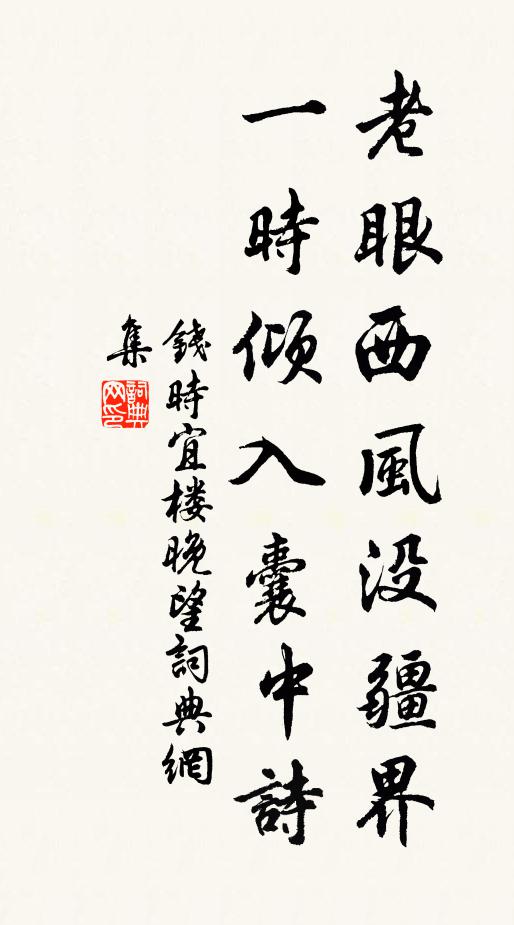 老眼西風没疆界
一時傾入囊中詩
錢時宜楼晚望詞典網
集
詞典
网印